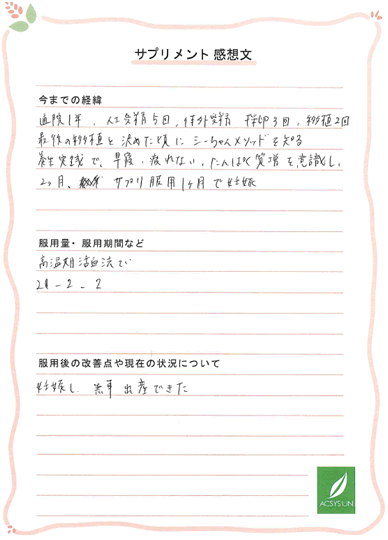 サプリメント 感想文
今までの経緯
通院1年、人工受精5回、体外受精 採卵3回、移植2回
最後の移植と決めた頃にシーちゃんメソッドを知る
養生実践で、早寝・疲れない・たんぱく質増を意識し、
2ヶ月、サプリ服用1ヶ月で妊娠
服用量・服用期間など
高温期活白法で
24-2-2
服用後の改善点や現在の状況について
妊娠し、無事 出産できた
ACSYSUN